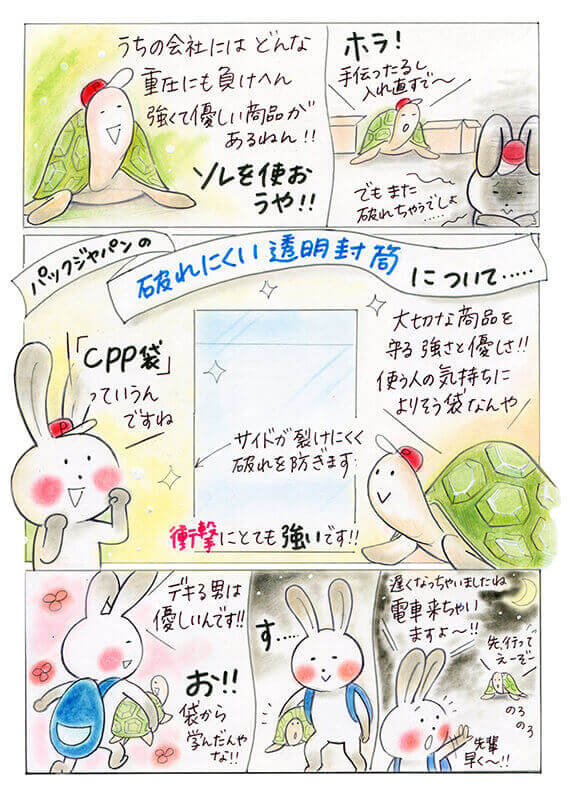 うちの会社には どんな
重圧にも負けへん
強くて優しい商品が
あるねん!!
ソレを使お
うや!!
ホラ!
手伝ったるし
入れ直すで〜
でもまた
破れちゃうでしょ
……
パックジャパンの
破れにくい透明封筒
について……
「CPP袋」
っていうん
ですね
大切な商品を
守る強さと優しさ!!
使う人の気持ちに
よりそう袋なんや
サイドが裂けにくく
破れを防ぎます
衝撃にとても強いです!!
P
デキる男は
優しいんです!!
お!!
袋から
学んだんや
な!!
す……
遅くなっちゃいましたね
電車来ちゃい
ますよ〜!!
先、行って
えーぞー
のろ
のろ
先輩
早く〜!!